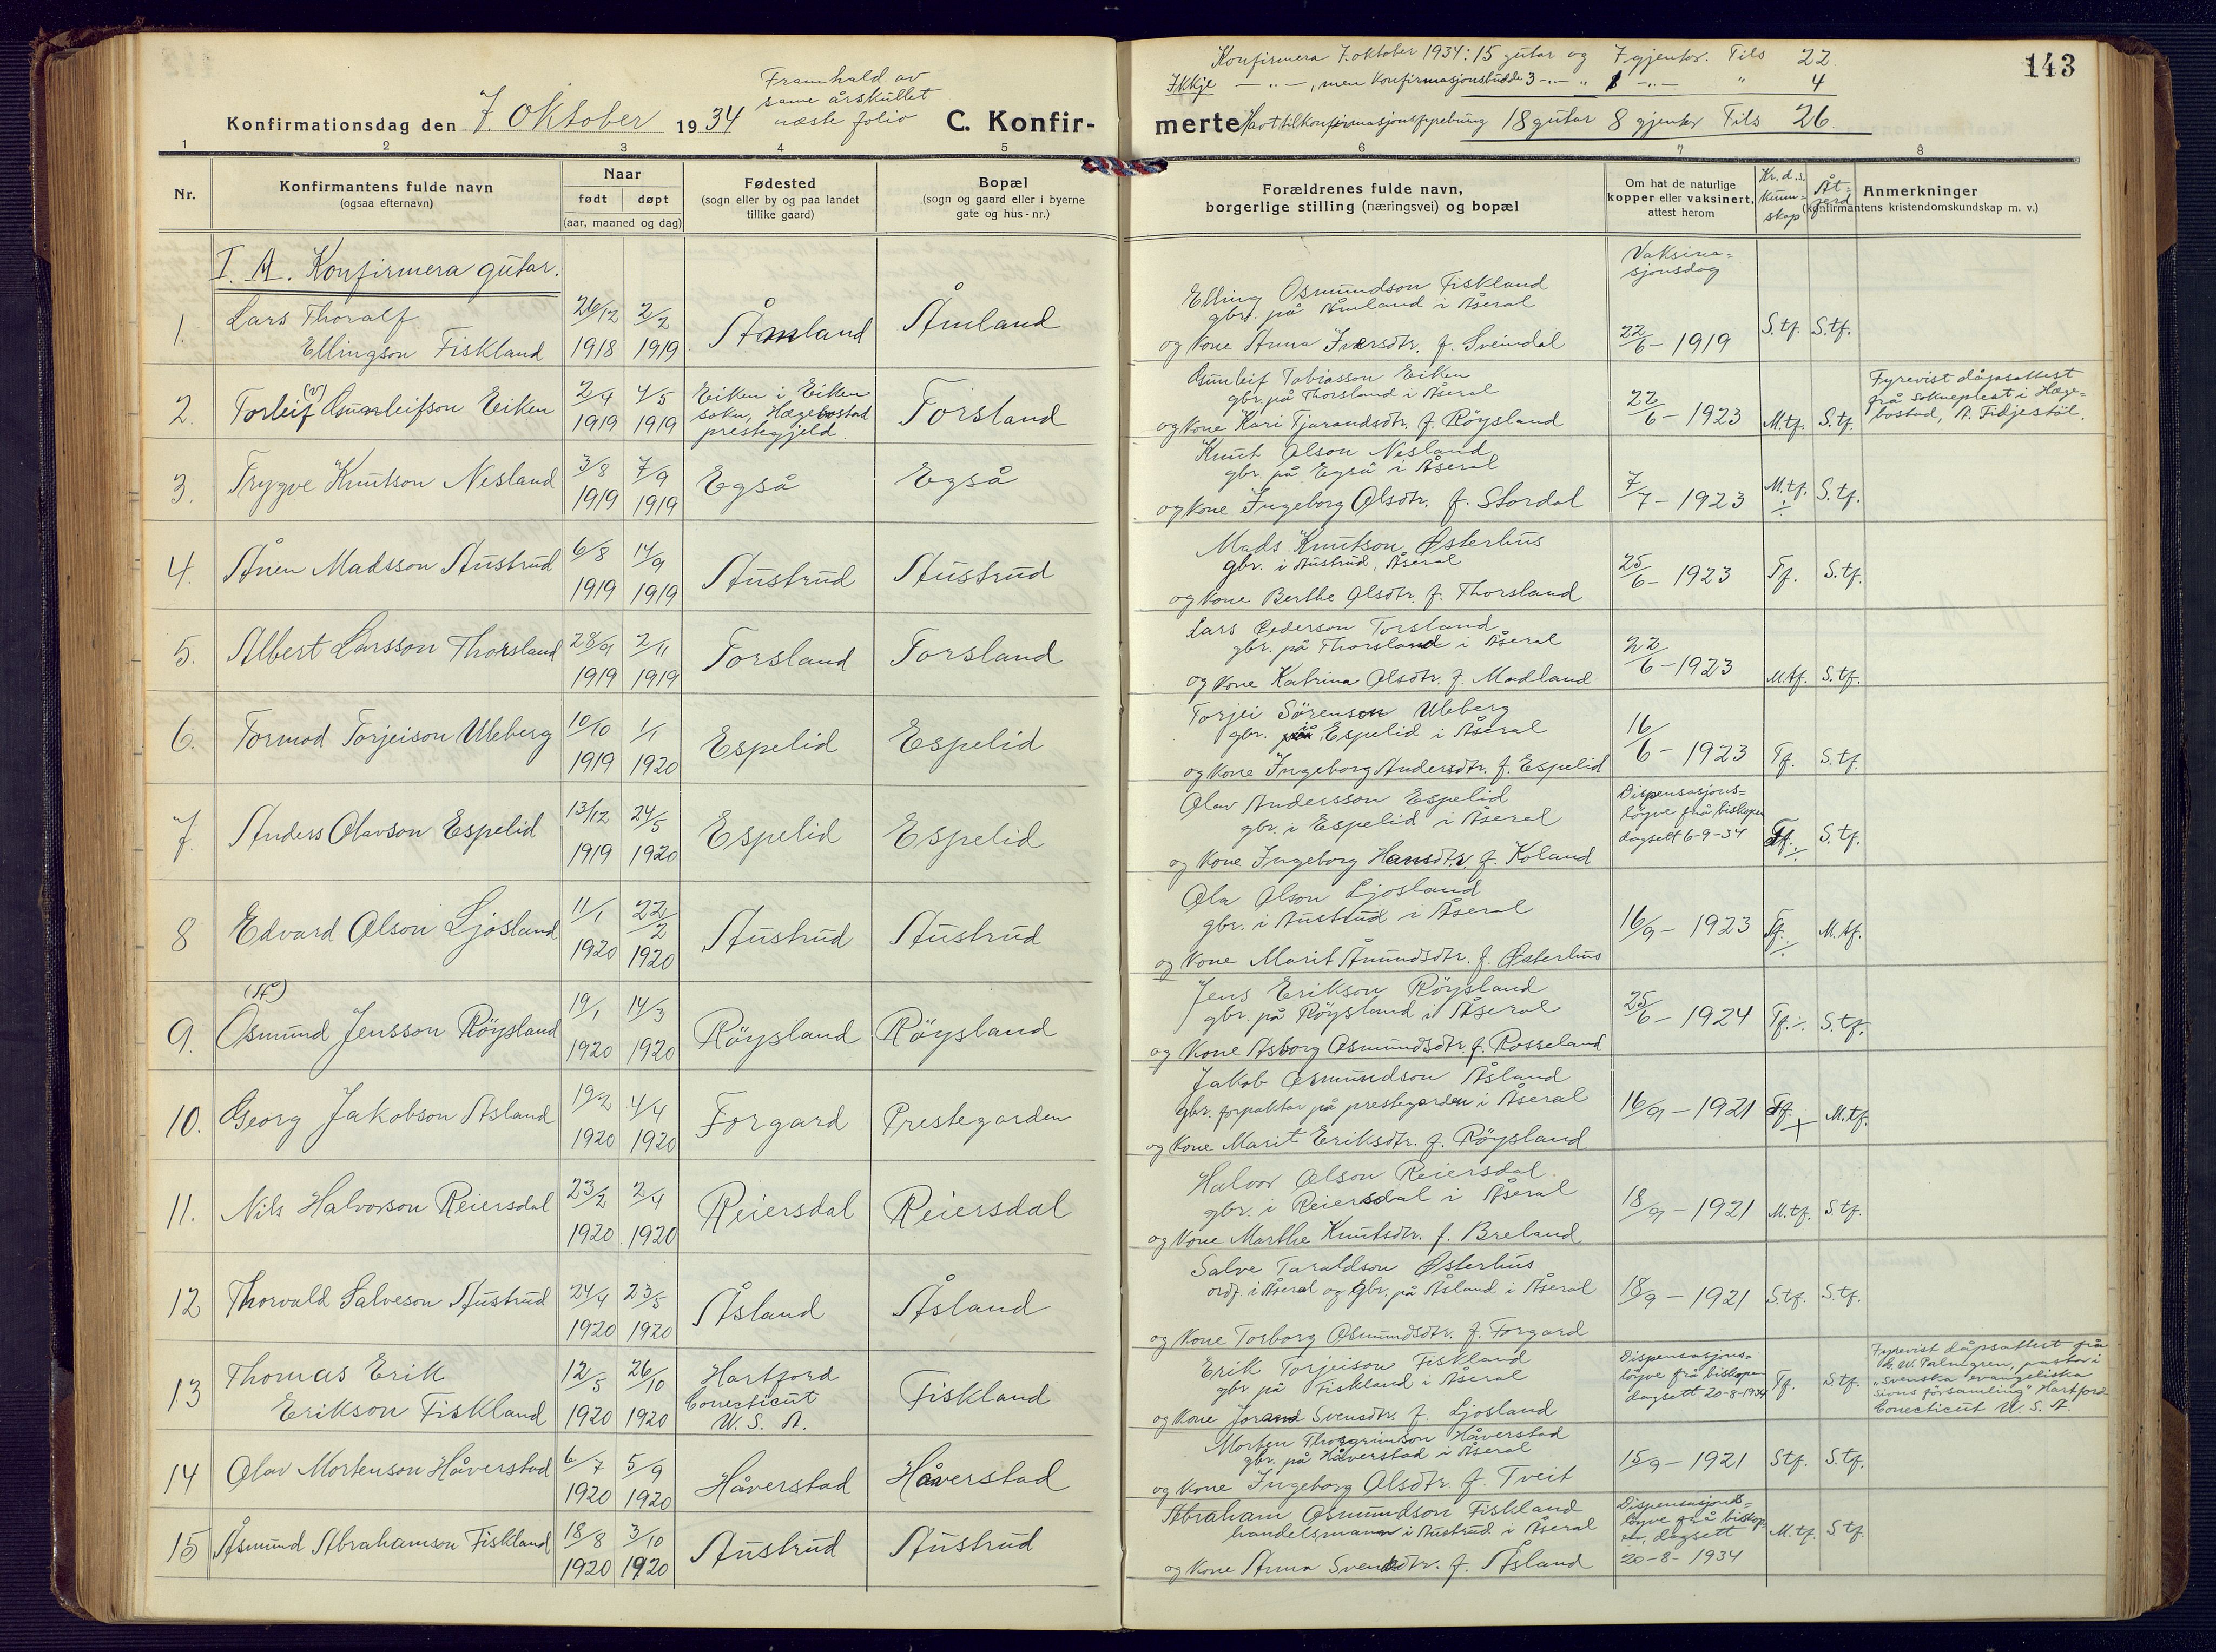 143
Konfirmationsdag den 7. Oktober 1934
Framhald av
same årskullet
næste folio
C. Konfir-
Konfirmera 7. oktober 1934: 15 gutar og 7 gjentor. Tils 22.
Ikkje — „ — , men konfirmasjonsbudde 3 -„- „ 1 -„- „ 4
merte
Havt til konfirmasjonsfyrebuing 18 gutar 8 gjentor Tils 26.
1 2 3 4 5 6 7 8
Nr.
Konfirmantens fulde navn
(ogsaa efternavn)
Naar
født døpt
(aar, maaned og dag)
Fødested
(sogn eller by og paa landet
tillike gaard)
Bopæl
(sogn og gaard eller i byerne
gate og hus-nr.)
Forældrenes fulde navn,
borgerlige stilling (næringsvei) og bopæl
Om hat de naturlige
kopper eller vaksinert,
attest herom
Kr.d.s.
kunn-
skap
Åt-
ferd
Anmerkninger
(konfirmantens kristendomskundskap m. v.)
I. A. Konfirmera gutar.
Vaksina-
sjonsdag
1. Lars Thoralf
Ellingson Fiskland
26/12 1918 2/2 1919 Åmland Åmland
Elling Osmundson Fiskland
gbr. på Åmland i Åseral
og kone Anna Iversdtr. f. Sveindal
22/6 - 1919 S.tf. S.tf.
2. Torleif Osmuleifson Eiken
2/4 1919 4/5 1919
Eiken i Eiken
sokn, Hægebostad
prestegjeld.
Torsland
Tobiasson Eiken
gbr. på Thorsland i Åseral
og kone Kari Tjarandsdtr. f. Röysland
22/6 - 1923 M.tf. S.tf.
Fyrevist dåpsattest
frå sokneprest i Hæge-
bostad, A. Fidjestöl.
3. Trygve Knutson Nesland
3/8 1919 7/9 1919 Egså Egså
Knut Olson Nesland
gbr. på Egså i Åseral
og kone Ingeborg Olsdtr. f. Stordal
7/7 - 1923 M.tf. ÷ S.tf.
4. Ånen Madsson Austrud
6/8 1919 14/9 1919 Austrud Austrud
Mads Knutson Østerhus
gbr. i Austrud, Åseral
og kone Berthe Olsdtr. f. Thorsland
25/6 - 1923 Tf. S.tf.
5. Albert Larsson Thorsland
28/9 1919 2/11 1919 Torsland Torsland
Lars Pederson Torsland
gbr. på Thorsland i Åseral
og kone Katrina Olsdtr. f. Madland
22/6 - 1923 M.tf. S.tf.
6. Tormod Torjeison Uleberg
10/10 1919 1/1 1920 Espelid Espelid
Torjei Sörenson Uleberg
gbr. i Espelid i Åseral
og kone Ingeborg Andersdtr. f. Espelid
16/6 - 1923 Tf. S.tf.
7. Anders Olavson Espelid
13/12 1919 24/5 1920 Espelid Espelid
Olav Andersson Espelid
gbr. i Espelid i Åseral
og kone Ingeborg Hansdtr. f. Koland
Dispensasjons-
löyve frå biskopen
dagsett 6-9-34
Tf. ÷ S.tf.
8 Edvard Olson Ljosland
11/1 1920 22/2 1920 Austrud Austrud
Ola Olson Ljosland
gbr. i Austrud i Åseral
og kone Marit Ånundsdtr. f. Østerhus
16/9 - 1923 Tf. ÷ M.tf.
9. (Å) Osmund Jensson Röysland
19/1 1920 14/3 1920 Röysland Röysland
Jens Erikson Röysland
gbr. på Röysland i Åseral
og kone Asborg Osmundsdtr. f. Rosseland
25/6 - 1924 Tf. ÷ S.tf.
10. Georg Jakobson Åsland
19/2 1920 4/4 1920 Forgard Prestegarden
Jakob Osmundson Åsland
gbr. forpaktar på prestegarden i Åseral
og kone Marit Eriksdtr. f. Röysland
16/9 - 1921 Tf. + M.tf.
11. Nils Halvorson Reiersdal
23/2 1920 2/4 1920 Reiersdal Reiersdal
Halvor Olson Reiersdal.
gbr. i Reiersdal i Åseral
og kone Marthe Knutsdtr. f. Breland
18/9 - 1921 M.tf. S.tf.
12 Thorvald Salveson Austrud
24/4 1920 23/5 1920 Åsland Åsland
Salve Taraldson Østerhus
ordf. i Åseral og gbr. på Åsland i Åseral
og kone Torborg Osmundsdtr. f. Forgard
18/9 - 1921 S.tf. S.tf.
13 Thomas Erik
Erikson Fiskland
12/5 1920 26/10 1920
Hartford
Conecticut
U. S. A.
Fiskland
Erik Torjeison Fiskland
gbr. på Fiskland i Åseral
og kone Jorand Svensdtr. f. Ljosland
Dispensasjons-
löyve frå biskopen
dagsett 20-8-1934
Tf. S.tf.
Fyrevist dåpsattest frå
G. W. Palmgren, pastor i
„Svenska evangeliska
Sions församling" Hartford
Conecticut U. S. A.
14 Olav Mortenson Håverstad
6/7 1920 5/9 1920 Håverstad Håverstad
Morten Thorgrimson Håverstad
gbr. på Håverstad i Åseral
og kone Ingeborg Olsdtr. f. Tveit
15/9 - 1921 Stf. S.tf.
15 Åsmund Abrahamson Fiskland
18/8 1920 3/10 1920 Austrud Austrud
Abraham Osmundson Fiskland
handelsmann i Austrud i Åseral
og kone Anna Svensdtr. f. Åsland
Dispensasjons-
löyve frå biskop
en, dagsett
20-8-1934
M.tf. S tf.